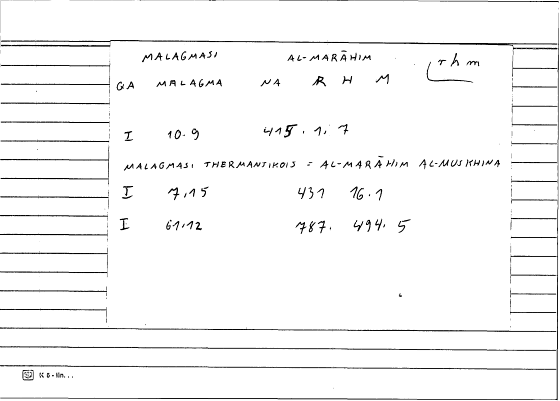 MALAGMASI AL-MARĀHIM rhm
QA MALAGMA NA R H M
I 10.9 415.1.7
MALAGMASI THERMANTIKOIS = AL-MARĀHIM AL-MUSKHINA
I 7,15 431 16.1
I 61,12 787. 494.5